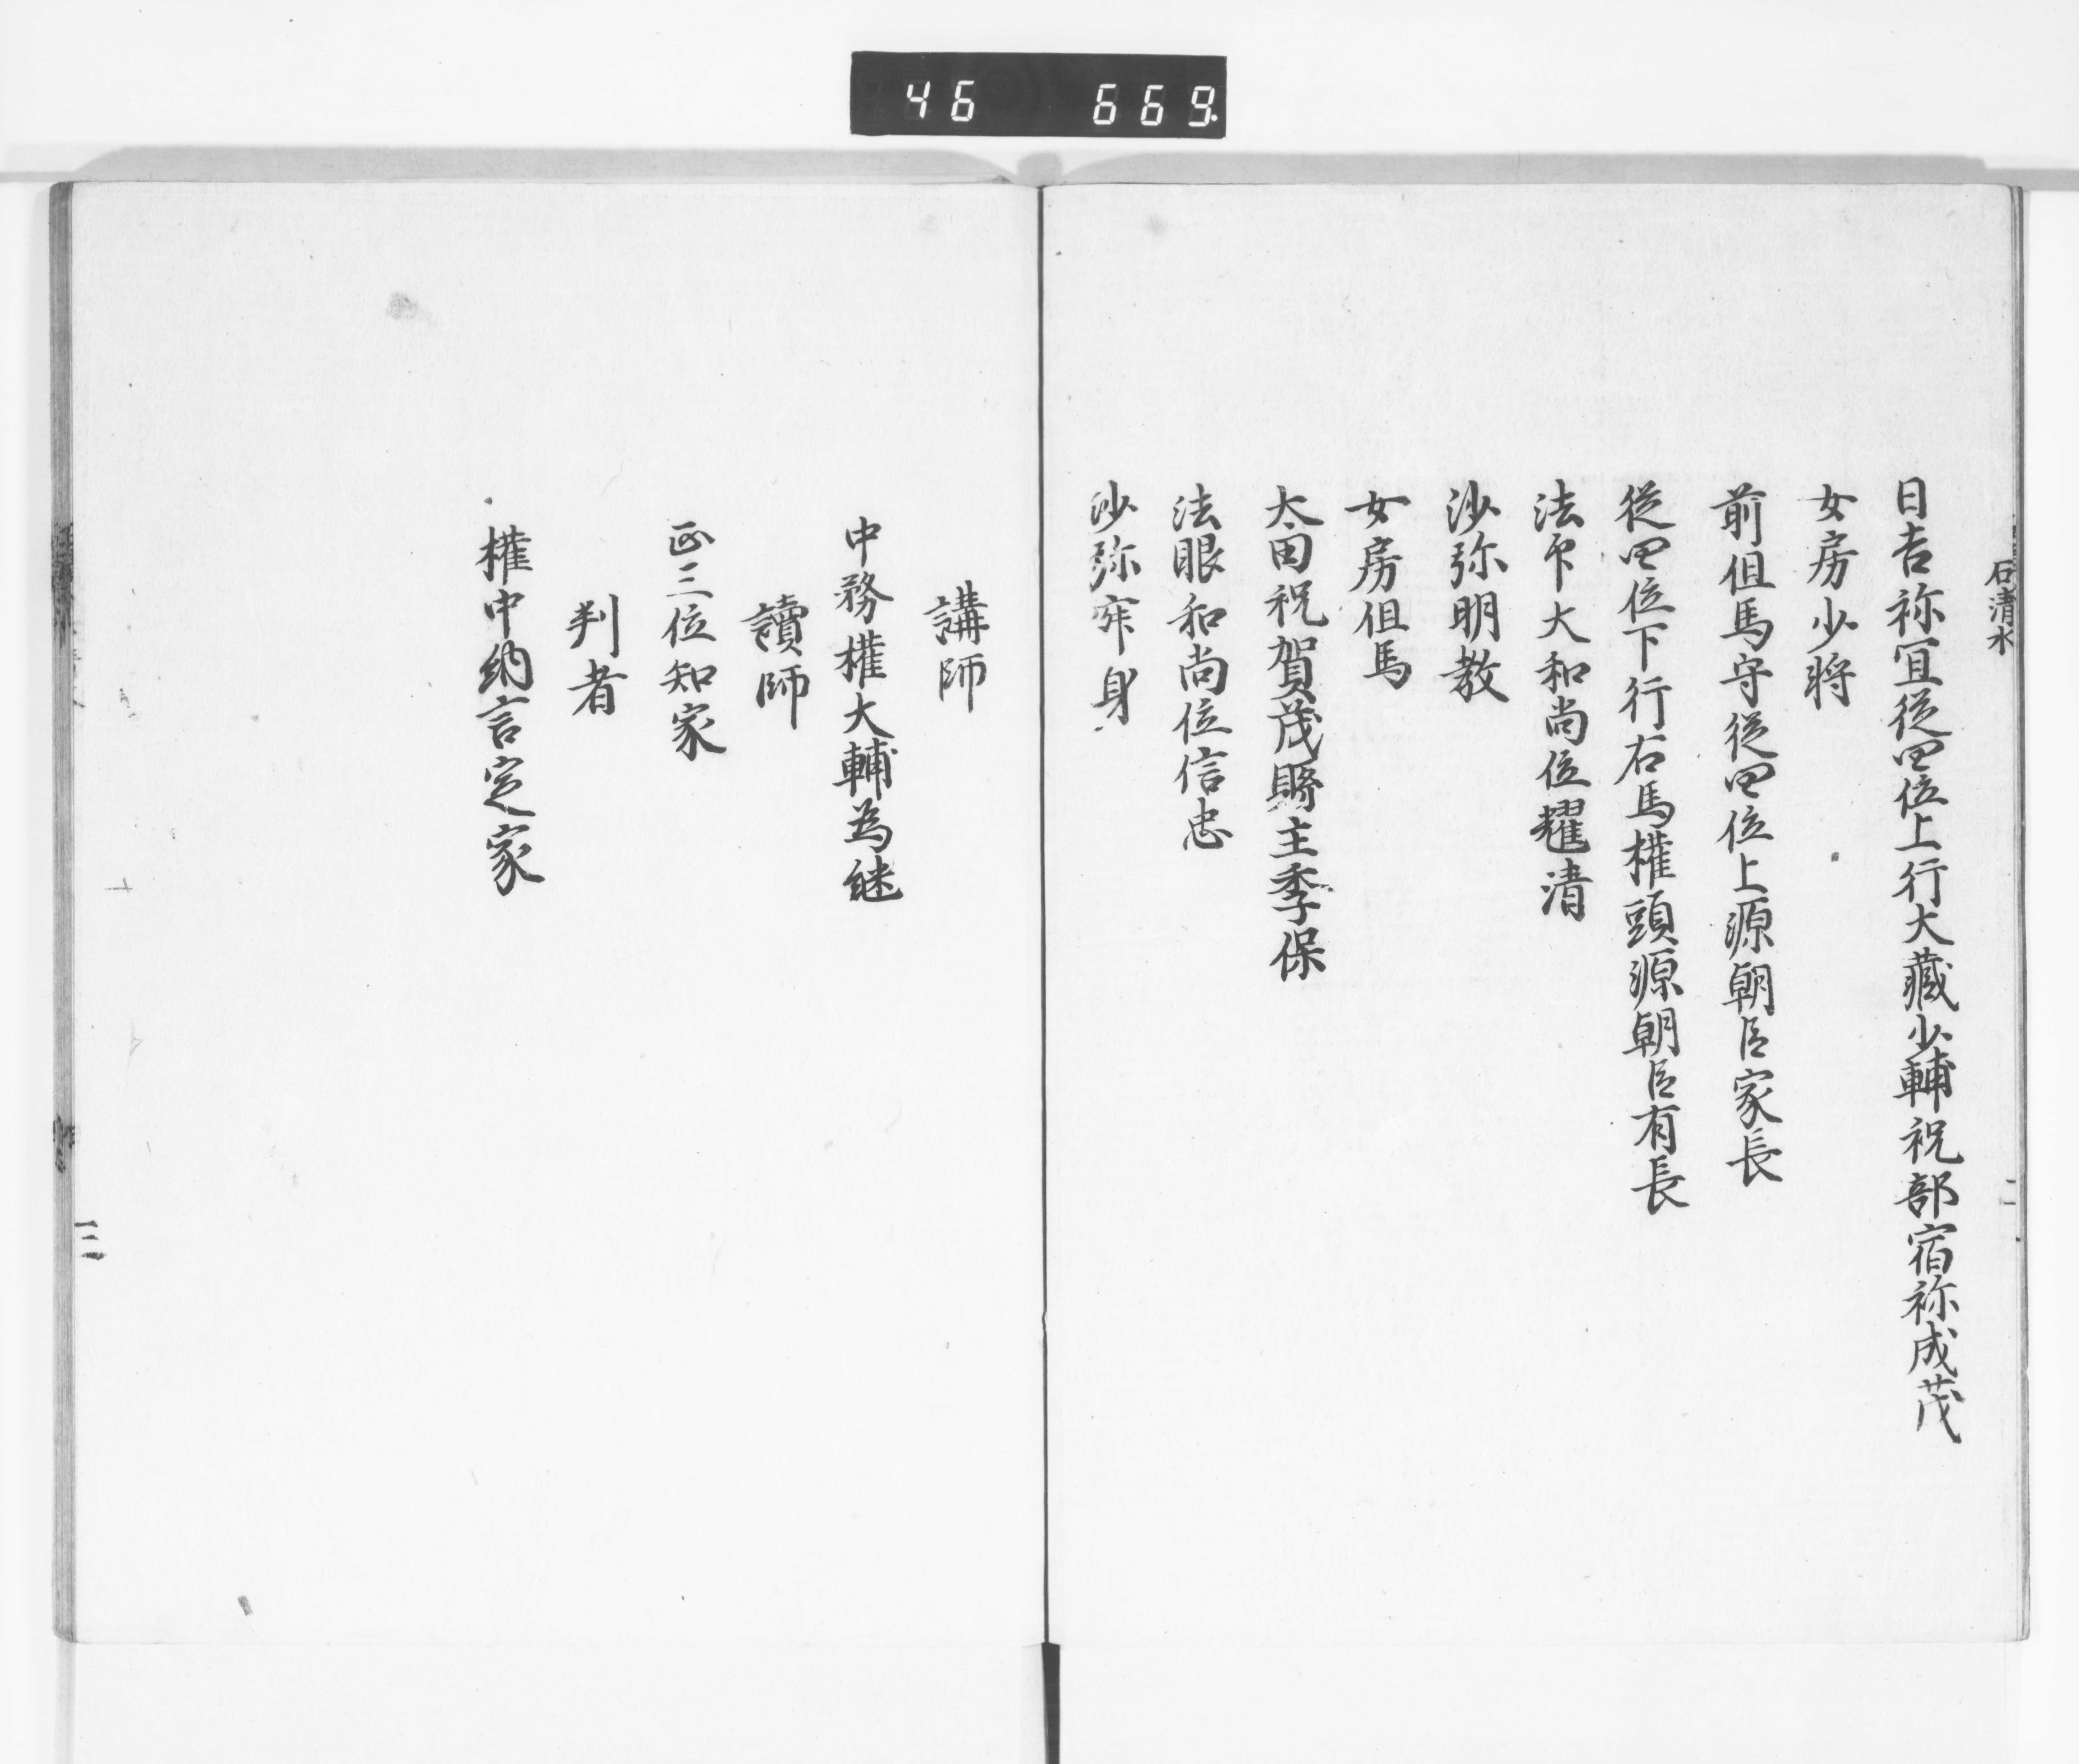 46 669
石清水
日吉祢宜従四位上行大蔵少輔祝部宿祢成茂
女房少将
前但馬守従四位上源朝臣家長
従四位下行右馬權頭源朝臣有長
法印大和尚位耀清
沙弥明教
女房但馬
太田祝賀茂縣主季保
法眼和尚位信忠
沙弥寂身
二
講師
中務權大輔為継
讀師
正三位知家
判者
權中納言定家
三